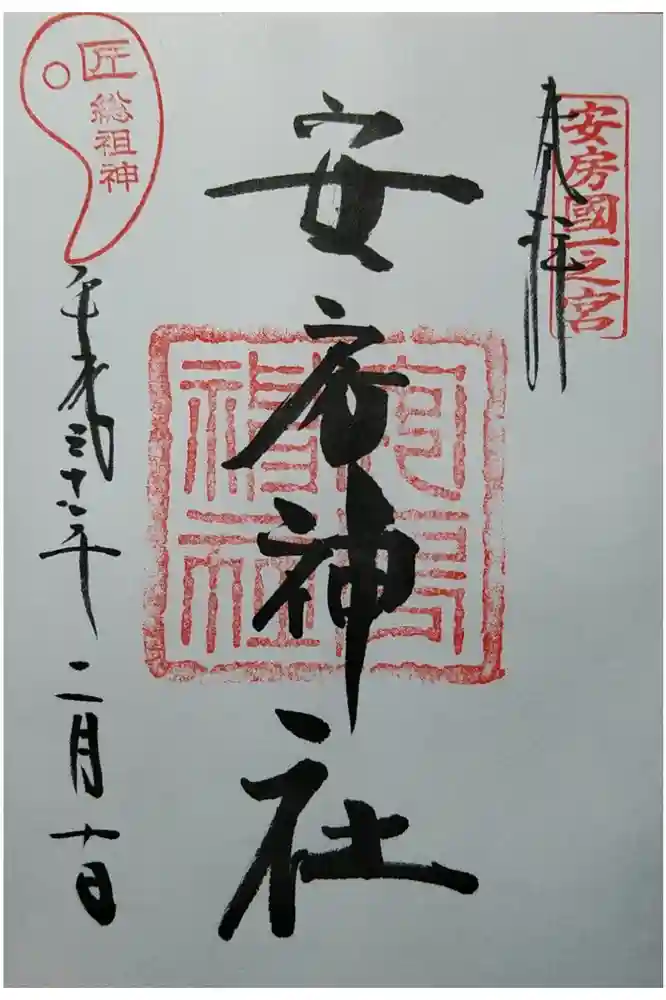 安房國一之宮
奉拝
安房神社
安房神社
匠 総祖神
平成 年二月十日